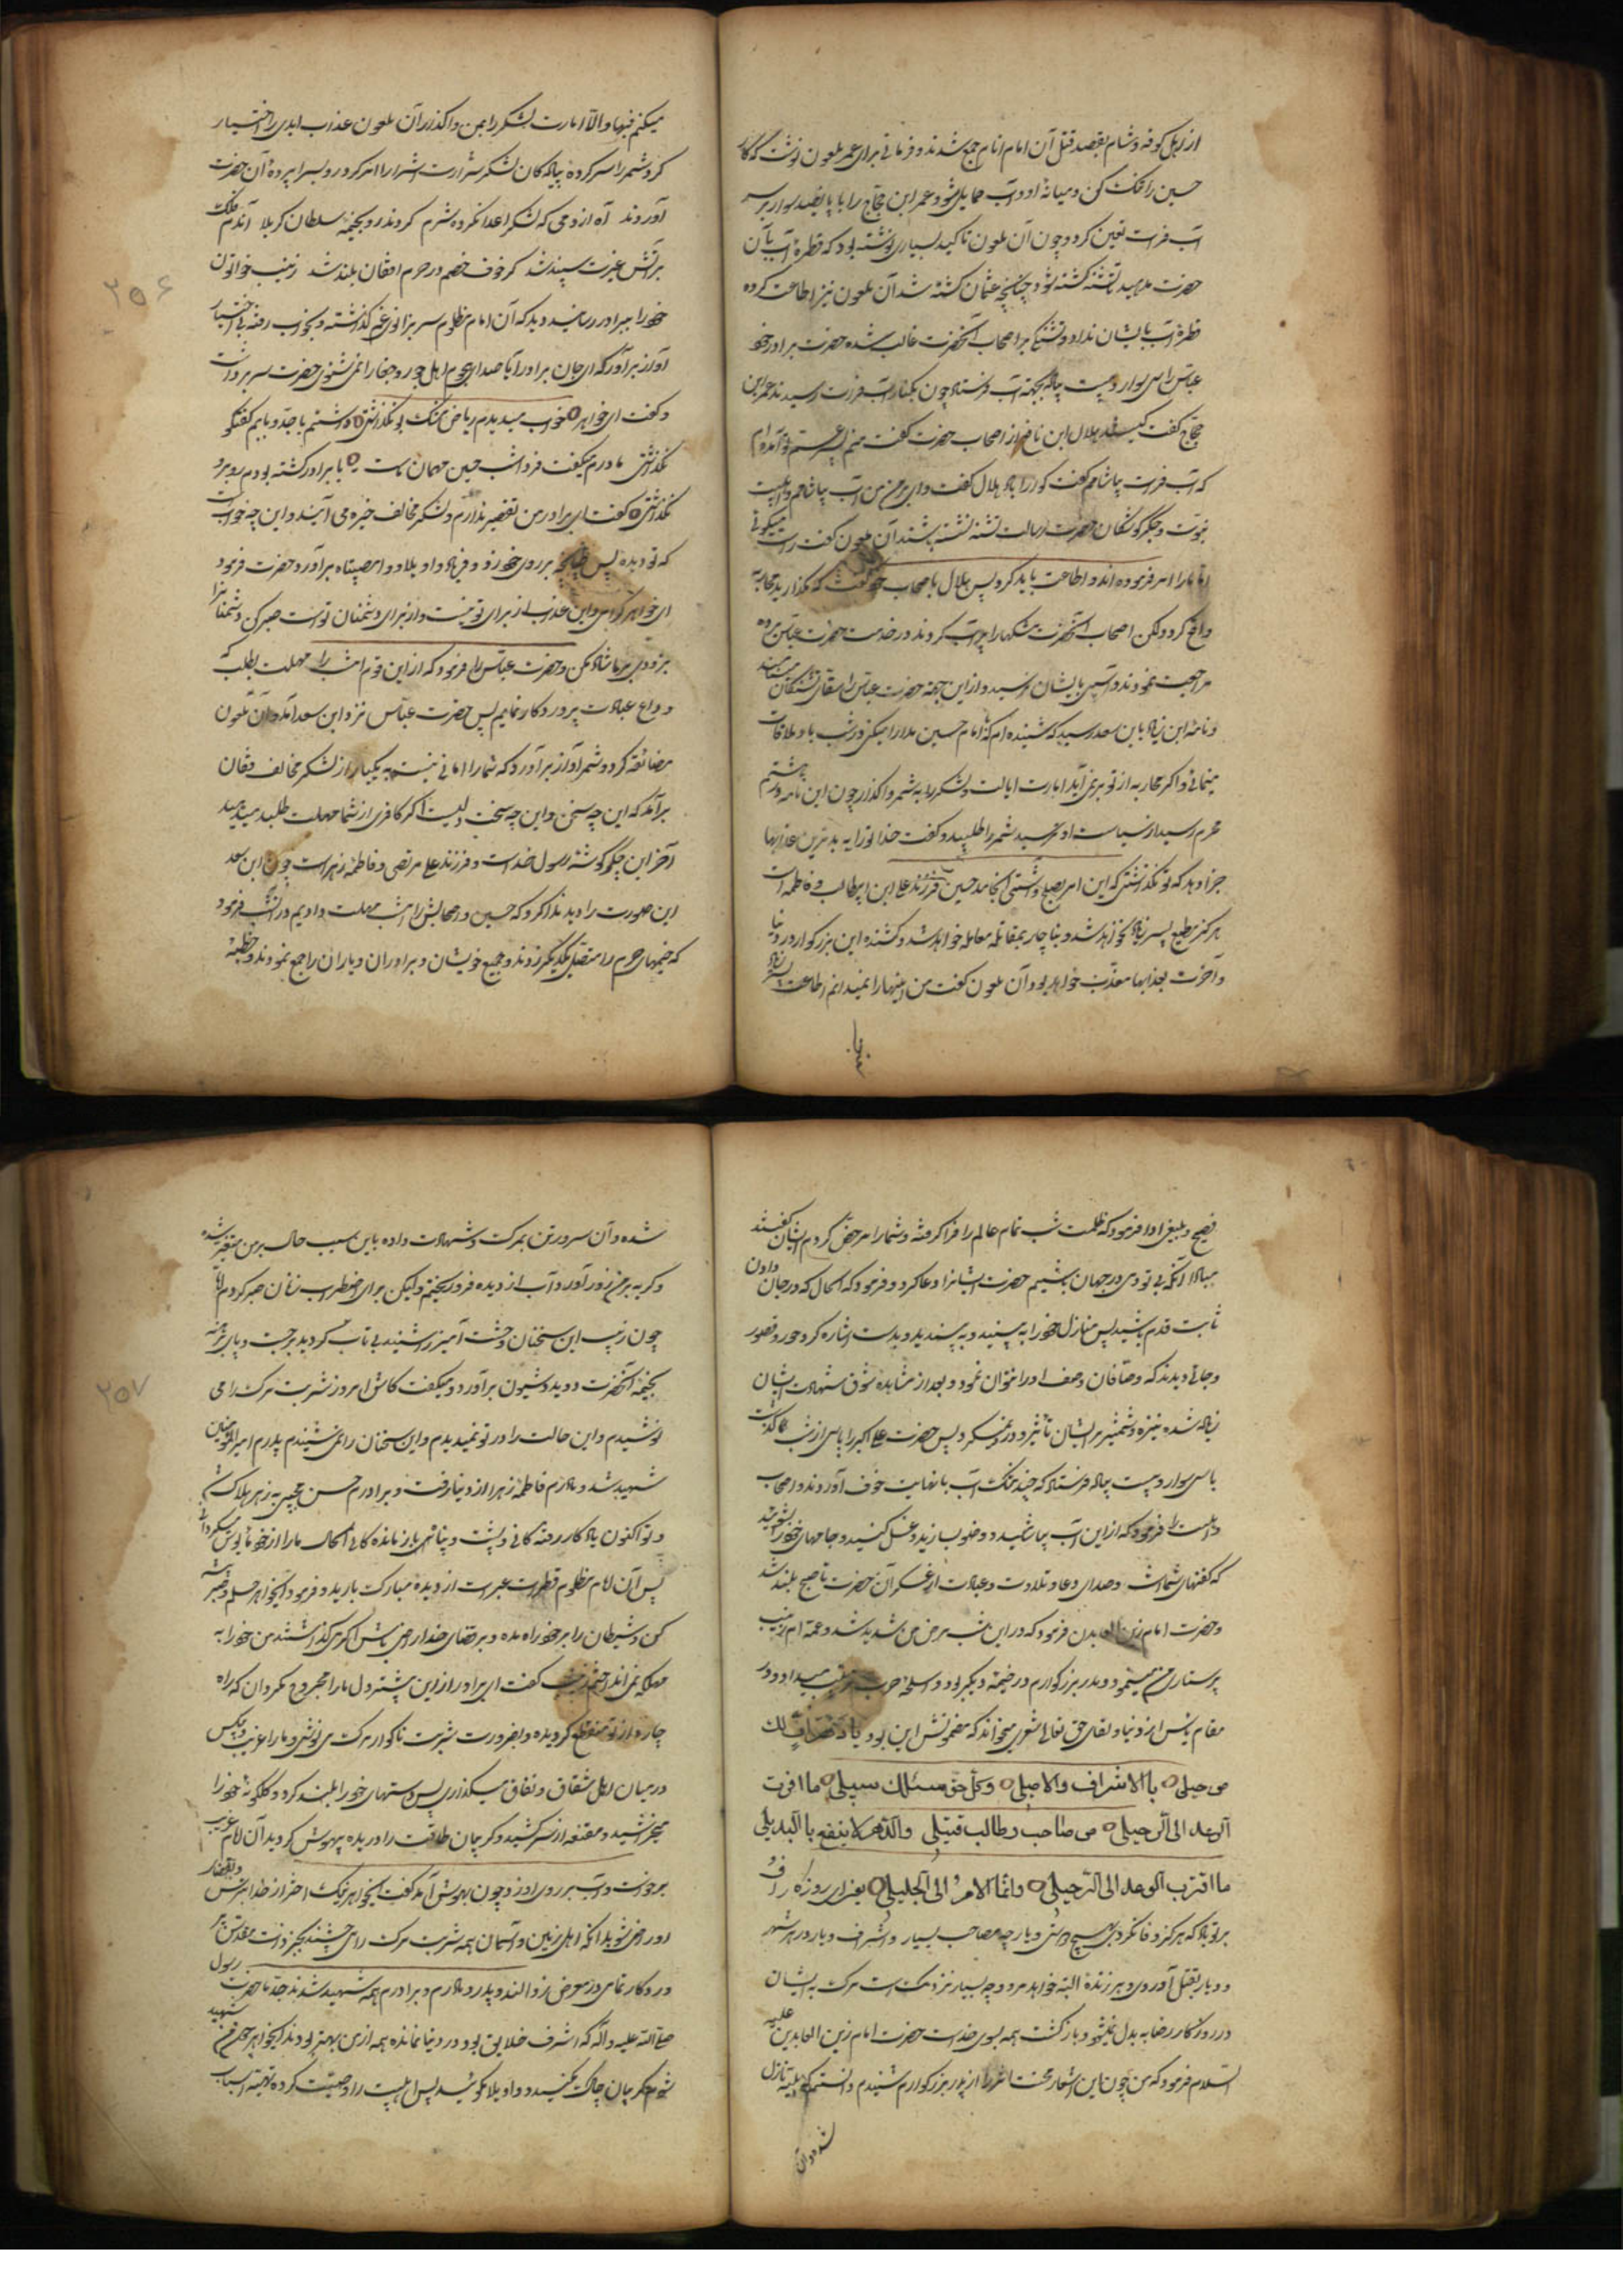 از اهل کوفه و شام بقصد قتل آن امام انام جمع شدند و فرمانی برای عمر ملعون نوشت که کار
حسین را تنک کن و میانهٔ او و آب حایل شو و عمر ابن حجاج را با پانصد سوار بر سر
آب فرات تعین کرد و چون آن ملعون تاکید بسیاری نوشته بود که قطرهٔ آب بآن
حضرت مدهید تا تشنه کشته شود چنانچه عثمان کشته شد آن ملعون نیز اطاعت کرده
قطرهٔ آب بایشان نداد و تشنگی بر اصحاب آنحضرت غالب شده حضرت برادر خود
عباس را با سی سوار و بیست پیاده بجهة آب فرستاد چون بکنار آب فرات رسیدند عمر ابن
حجاج گفت کیست هلال ابن نافع از اصحاب حضرت گفت منم پسر عم تو آمده‌ام
که آب فرات بیاشامم گفت گوارا باد هلال گفت وای بر تو من آب بیاشامم و اهلبیت
نبوت و جگرگوشگان حضرت رسالت تشنه باشند آن ملعون گفت راست میگوئی
اما ما را امر فرموده‌اند و اطاعت باید کرد پس هلال باصحاب خود گفت که مگذارید محاربه
واقع کرد ولکن اصحاب آنحضرت مشکها را پر آب کردند و در خدمت حضرت عباس بوده
مراجعت نمودند و آسیبی بایشان نرسید و از این جهة حضرت عباس را سقای تشنگان مینامند
و نامهٔ ابن زیاد بابن سعد رسید که شنیده‌ام که با امام حسین مدارا میکنی و در شب با او ملاقات
مینمائی و اگر محاربه از تو بر نمی‌آید امارت ایالت و لشکر را به شمر واگذار چون این نامه در هشتم
محرم رسید از سیاست او ترسید شمر را طلبید و گفت خدا تو را به بدترین عذابها
جزا دهد که تو نگذاشتی که این امر بصلح و آشتی انجامد حسین فرزند علی ابن ابیطالب و فاطمه است
هرگز مطیع پسر زیاد نخواهد شد و بناچار بمقاتله معامله خواهد شد و کشنده این بزرگوار در دنیا
و آخرت بعذابها معذب خواهد بود آن ملعون گفت من اینها را نمیدانم اطاعت پسر زیاد
میکنم فبها والا امارت لشکر را بمن واگذار آن ملعون عذاب ابدی را اختیار
کرد شمر را سرکرده پیادگان لشکر شرارت اشرار را امر کرد رو بسراپرده آن حضرت
آوردند آه از دمی که لشکر اعدا نکرده شرم کردند رو بخیمه سلطان کربلا آندم فلک
بر آتش غیرت سپند شد کز خوف خصم در حرم افغان بلند شد زینب خواتون
خود را ببرادر رسانید دید که آن امام مظلوم سر بزانوی غم گذاشته و بخواب رفته بی اختیار
آواز برآورد که ای جان برادر آیا صدای هجوم اهل جور و جفا را نمی‌شنوی حضرت سر برداشت
و گفت ای خواهر خواب میدیدم ریاض تنک بو نگذاشتی داشتم با جد و بابم گفتگو
نگذاشتی مادرم میگفت فردا شب حسین مهمان ماست با برادر گشته بودم روبرو
نگذاشتی گفت ای برادر من تقصیر ندارم و لشکر مخالف خیره می‌آیند و این چه خوابست
که تو دیدهٔ پس طپانچه بر روی خود زد و فریاد واویلاه و وامصیبتاه برآورد حضرت فرمود
ای خواهر گرامی واین عذاب از برای تو نیست و از برای دشمنان توست صبر کن و دشمنان را
بزودی بر ما شاد مکن و حضرت عباس را فرمود که از این قوم امشب را مهلت بطلب که
وداع عبادت پروردگار نمایم پس حضرت عباس نزد ابن سعد آمد و آن ملعون
مضایقه کرد و شمر آواز برآورد که شما را امانی نیست به یکبار از لشکر مخالف فغان
برآمد که این چه سخن و این چه سخت دلیست اگر کافری از شما مهلت طلبد میدهید
آخر این جگرگوشهٔ رسول خداست و فرزند علی مرتضی و فاطمه زهراست چون ابن سعد
این صورت را دید ندا کرد که حسین و اصحابش را امشب مهلت دادیم در آنشب فرمود
که خیمهای حرم را متصل یکدیگر زدند و جمیع خویشان و برادران و یاران را جمع نمودند و خطبهٔ
۲۵۶
فصیح و بلیغی ادا فرمود که ظلمت شب تمام عالم را فرا گرفته و شما را مرخص کردم ایشان گفتند
مبادا آنکه بی تو دمی در جهان باشیم حضرت ایشانرا دعا کرد و فرمود که الحال که در جان دادن
ثابت قدم باشید پس منازل خود را به بینید و به پسندید و بدست اشاره کرد حور و قصور
و جائی دیدند که وصافان وصف او را نتوان نمود و بعد از مشاهده شوق شهادت ایشان
زیاده شده نیزه و شمشیر بر ایشان تأثیر و درد نمیکرد پس حضرت علی اکبر را پاسی از شب گذشت
با سی سوار و بیست پیاده فرستاد که چند مشک آب با نهایت خوف آوردند و اصحاب
و اهلبیت را فرمود که از این آب بیاشامید و وضو بسازید و غسل کنید و جامهای خود را بشوئید
که کفنهای شماست و صدای دعا و تلاوت و عبادت از عسکر آن حضرت تا صبح بلند شد
و حضرت امام زین العابدین فرمود که در این شب مرض من شدید شد و عمه ام زینب
پرستاری من مینمود و پدر بزرگوارم در خیمهٔ دیگر بود و اسلحهٔ حرب ترتیب میداد و در
مقام یأس از دنیا و لقای حق تعالی اشعاری میخواند که مضمونش این بود یا دهر اف لک
من خلیلی بالاشراف والاصیلی وکل حی سالک سبیلی ما اقرب
الوعد الی الرحیلی من صاحب وطالب قتیلی والدهر لا ینفع بالبدیلی
ما اقترب الوعد الی الرحیلی وانما الامر الی الجلیلی یعنی ای روزگار اف
بر تو باد که هرگز وفا نکردی بهیچ دوستی و یار چه مصاحب بسیار و اشراف و یار در هر شهر
و دیار بقتل آوردی و هر زندهٔ البته خواهد مرد و چه بسیار نزدیک است مرگ به ایشان
در روزگار رضا به بدل نمیشود و بازگشت همه بسوی خداست حضرت امام زین العابدین علیه
السلام فرمود که من چون این اشعار محنت اثر را از پدر بزرگوارم شنیدم دانستم که بلیه نازل
شده و آن
شده و آن سرور تن بمرگ و شهادت داده باین سبب حال بر من متغیر شده
و گریه بر من زور آورد و آب از دیده فرو ریختم ولیکن برای اضطراب زنان صبر کردم اما
چون زینب این سخنان وحشت آمیز را شنید بی تاب گردید برجست و پای برهنه
بخیمهٔ آنحضرت دوید و شیون برآورد و میگفت کاش امروز شربت مرگ را می
نوشیدم و این حالت را در تو نمیدیدم و این سخنان را نمی‌شنیدم پدرم امیرالمؤمنین
شهید شد و مادرم فاطمه زهرا از دنیا رفت و برادرم حسن مجتبی به زهر هلاک
و تو اکنون یادگار رفته‌گانی و پشت و پناهی باز مانده‌گانی الحال ما را از خود مأیوس میگردانی
پس آن امام مظلوم قطرات عبرت از دیدهٔ مبارکت بارید و فرمود ایخواهر حلم و صبر پیشه
کن و شیطان را بر خود راه مده و بر قضای خدا راضی باش اگر میگذاشتند من خود را به
مهلکه نمی‌انداختم زینب گفت ای برادر از این پیشتر دل ما را مجروح مگردان که راه
چاره از تو منقطع گردیده و بضرورت شربت ناگوار مرگ می‌نوشی و ما را غریب و بیکس
در میان اهل شقاق و نفاق میگذاری پس دستهای خود را بلند کرد و گلگونهٔ خود را
میخراشید و مقنعه از سر کشید و گریبان طاقت را دریده بیهوش گردید آن امام غریب
برخواست و آب بر روی او زد و چون بهوش آمد گفت ایخواهر نیک اختر از خدا بترس و بقضای
او راضی شو بدانکه اهل زمین و آسمان همه شربت مرگ را می‌چشند بجز ذات مقدس پر
وردگار تمامی در معرض زوالند و پدر و مادرم و برادرم همه شهید شدند جدم حضرت رسول
صلی الله علیه و آله که اشرف خلایق بود در دنیا نمانده همه از من بهتر بودند ایخواهر چون من شهید
شوم گریبان چاک مکنید و واویلا مگوئید پس اهلبیت را وصیت کرده بتهیه اسباب
۲۵۷